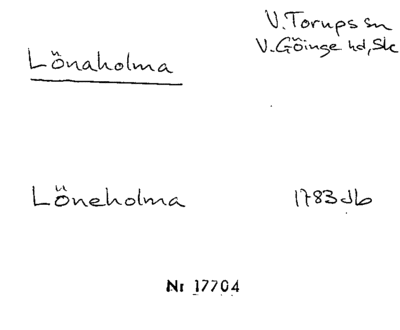 V. Torups sn
V. Göinge hd, Sk
Lönaholma
Löneholma 1783 Jb
Nr 17704